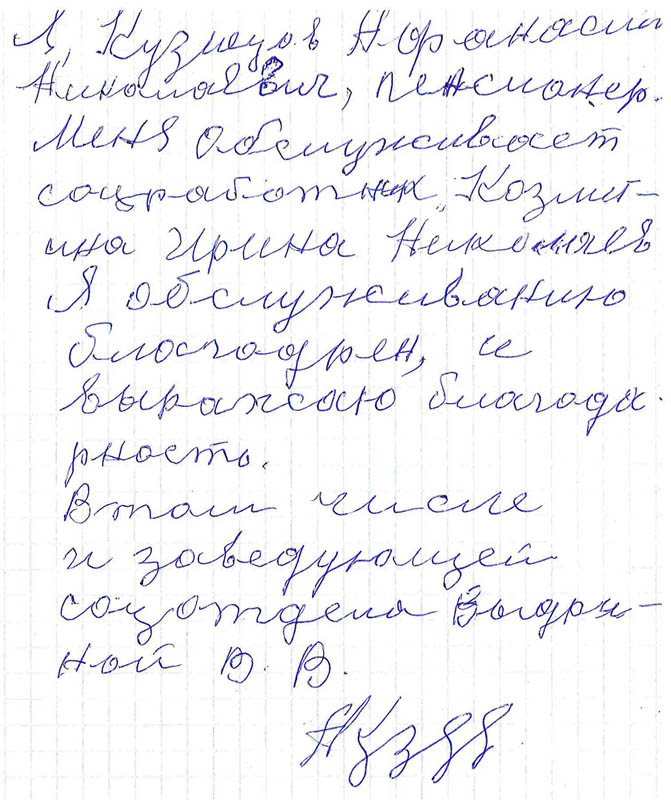 Я, Кузнецов Афанасий
Николаевич, пенсионер.
Меня обслуживает
соцработник Козми-
чна Ирина Николаев
Я обслуживанию
благодрен, и
выражаю благода
рность.
В том числе
и заведующей
соцотдела Выдри-
ной В. В.